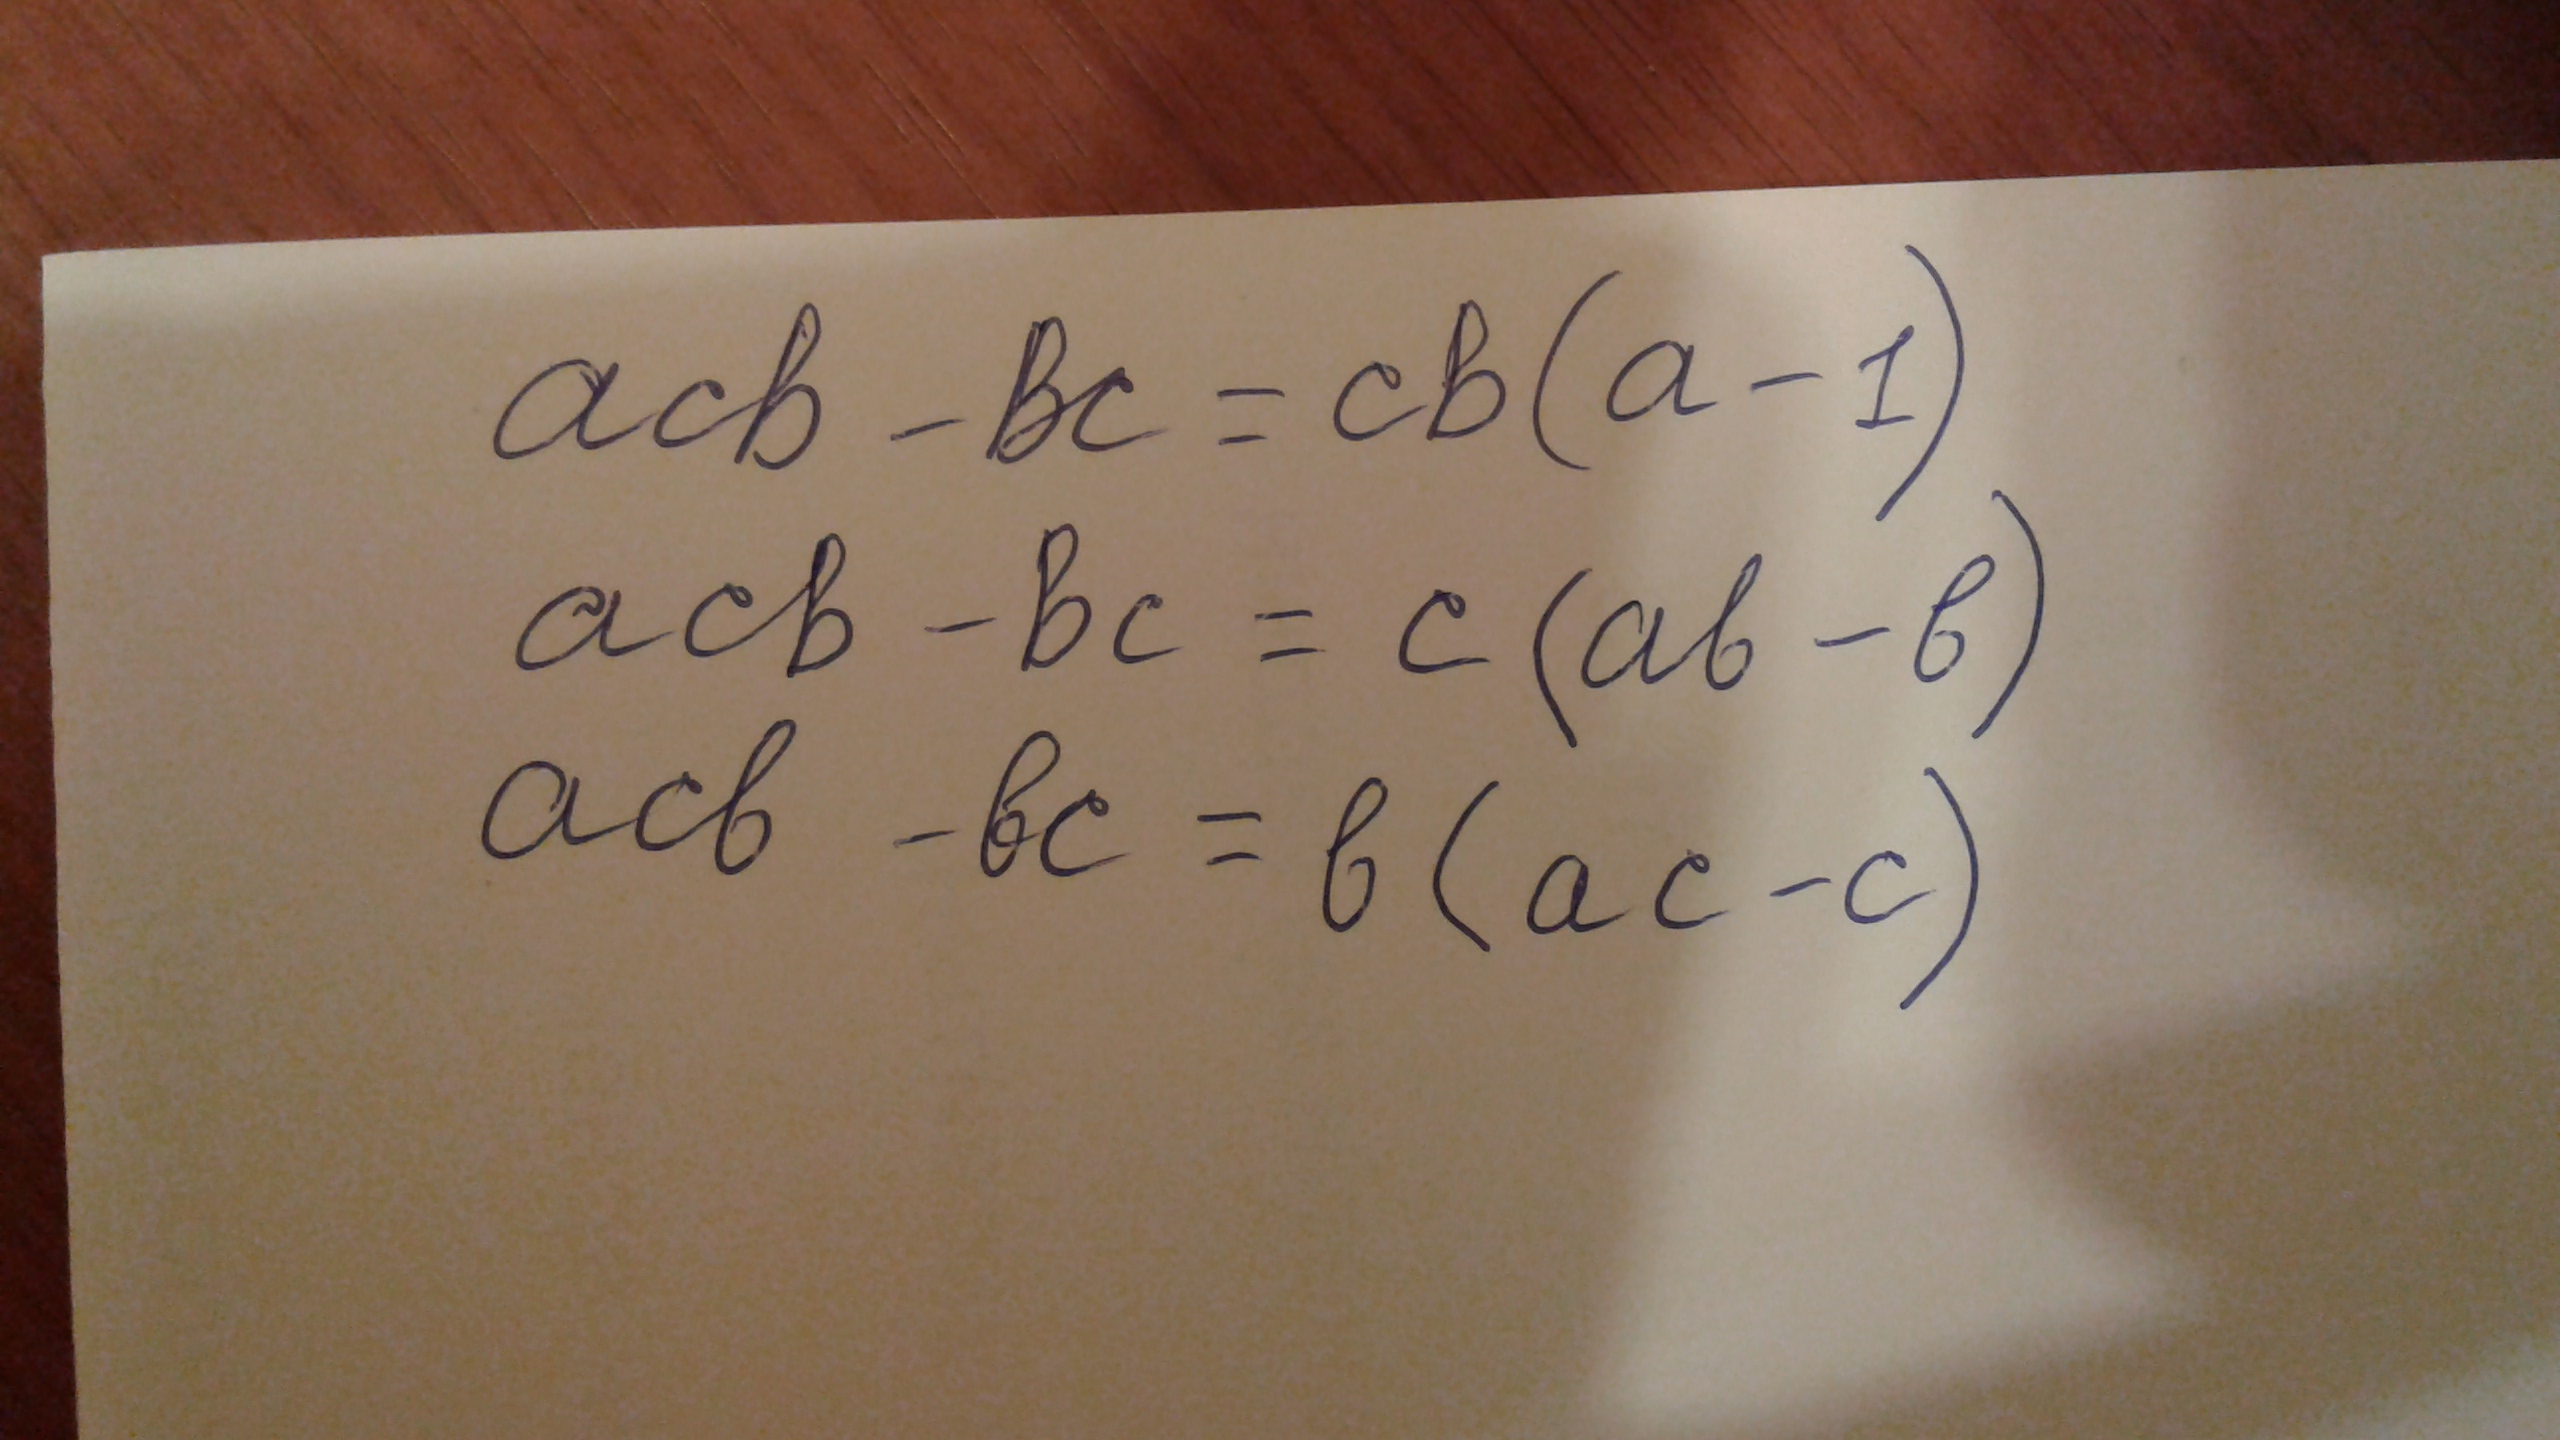 acb - bc = cb(a - 1)
acb - bc = c(ab - b)
acb - bc = b(ac - c)